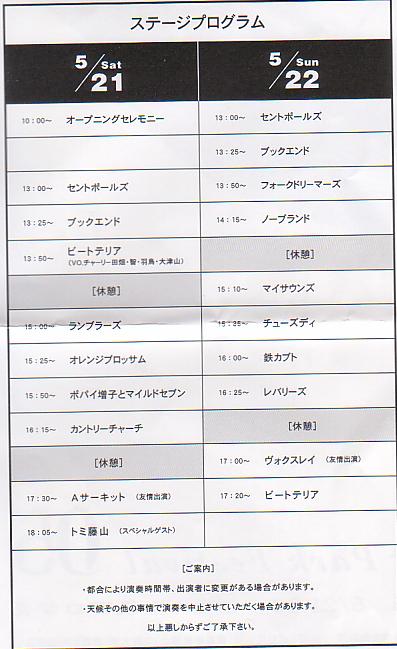 ステージプログラム
5/21 Sat
5/22 Sun
10:00～ オープニングセレモニー
13:00～ セントポールズ
13:25～ ブックエンド
13:00～ セントポールズ
13:50～ フォークドリーマーズ
13:25～ ブックエンド
14:15～ ノーブランド
13:50～ ビートテリア
(VO.チャーリー田畑・智・羽鳥・大津山)
[休憩]
[休憩]
15:10～ マイサウンズ
15:00～ ランブラーズ
15:35～ チューズディ
15:25～ オレンジブロッサム
16:00～ 鉄カブト
15:50～ ポパイ増子とマイルドセブン
16:25～ レバリーズ
16:15～ カントリーチャーチ
[休憩]
[休憩]
17:00～ ヴォクスレイ (友情出演)
17:30～ Aサーキット (友情出演)
17:20～ ビートテリア
18:05～ トミ藤山 (スペシャルゲスト)
[ご案内]
・都合により演奏時間帯、出演者に変更がある場合があります。
・天候その他の事情で演奏を中止させていただく場合があります。
以上悪しからずご了承下さい。